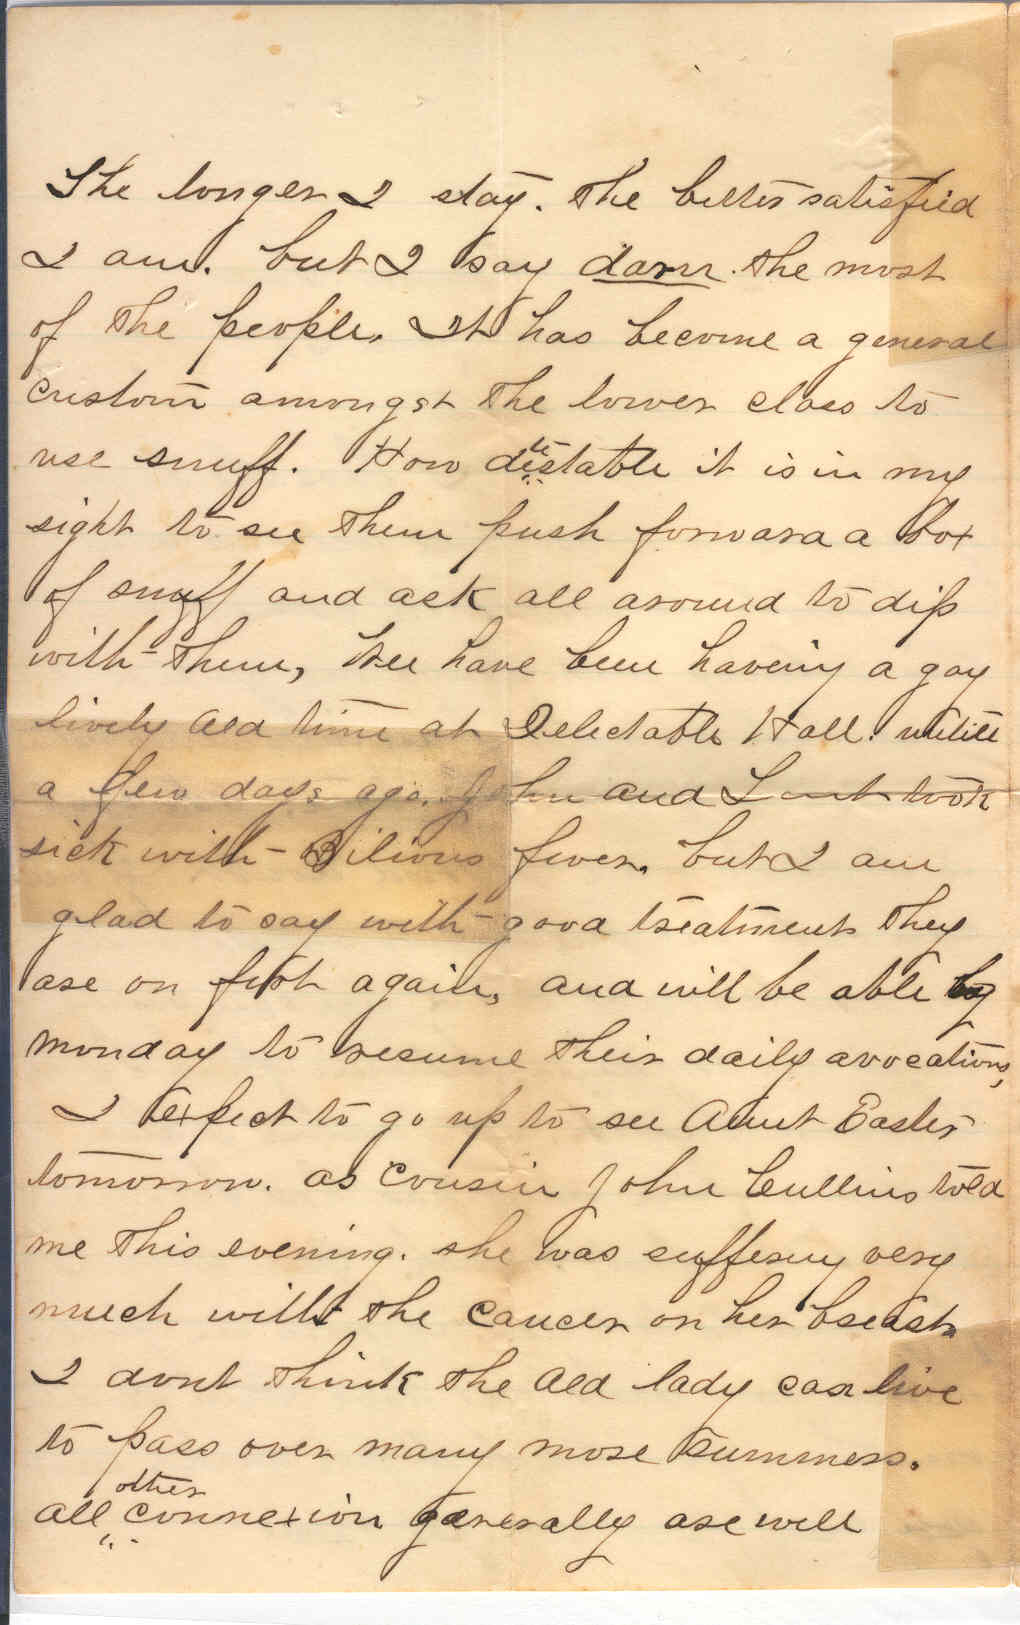 The longer I stay. the better satisfied
I am. but I say darn the most
of the people. It has become a general
custom amongst the lower class to
use snuff. How detestable it is in my
sight to see them push forward a box
of snuff and ask all around to dip
with them, We have been haveing a gay
lively old time at Delectable Hall. untill
a few days ago. John and L took
sick with Bilious fever. but I am
glad to say with good treatment they
are on foot again, and will be able by
monday to resume their daily avocations,
I expect to go up to see Aunt Easter
tomorrow. as Cousin John Cullins told
me this evening. she was suffering very
much with the cancer on her breast.
I dont think the old lady can live
to pass over many more summers.
all other connexion generally are well